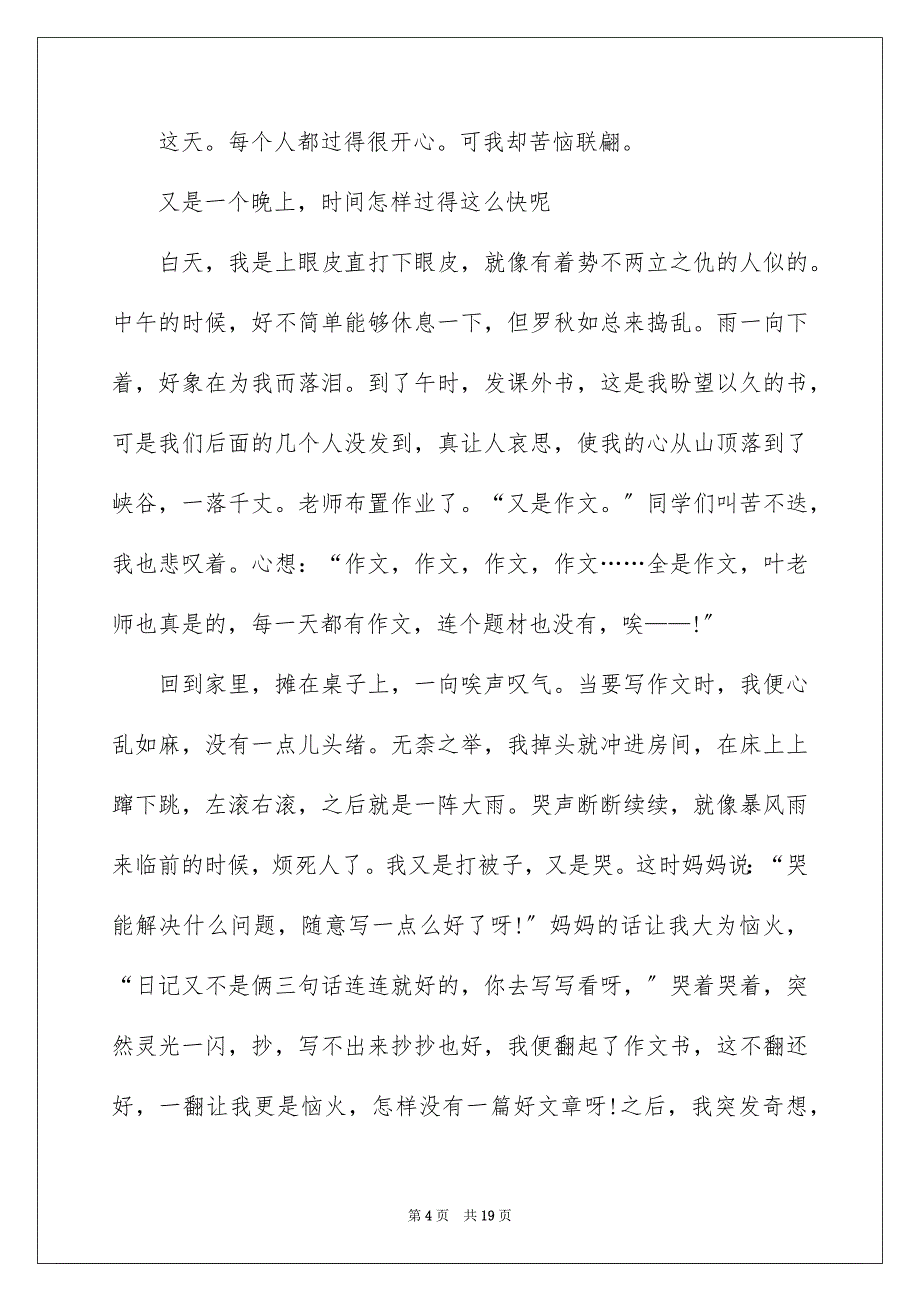 这天。每个人都过得很开心。可我却苦恼联翩。
又是一个晚上，时间怎样过得这么快呢
白天，我是上眼皮直打下眼皮，就像有着势不两立之仇的人似的。
中午的时候，好不简单能够休息一下，但罗秋如总来捣乱。雨一向下
着，好象在为我而落泪。到了午时，发课外书，这是我盼望以久的书，
可是我们后面的几个人没发到，真让人哀思，使我的心从山顶落到了
峡谷，一落千丈。老师布置作业了。“又是作文。〞同学们叫苦不迭，
我也悲叹着。心想：“作文，作文，作文，作文……全是作文，叶老
师也真是的，每一天都有作文，连个题材也没有，唉——!〞
回到家里，摊在桌子上，一向唉声叹气。当要写作文时，我便心
乱如麻，没有一点儿头绪。无柰之举，我掉头就冲进房间，在床上上
蹿下跳，左滚右滚，之后就是一阵大雨。哭声断断续续，就像暴风雨
来临前的时候，烦死人了。我又是打被子，又是哭。这时妈妈说：“哭
能解决什么问题，随意写一点么好了呀!〞妈妈的话让我大为恼火，
“日记又不是俩三句话连连就好的，你去写写看呀，〞哭着哭着，突
然灵光一闪，抄，写不出来抄抄也好，我便翻起了作文书，这不翻还
好，一翻让我更是恼火，怎样没有一篇好文章呀!之后，我突发奇想，
第 4 页 共 19 页